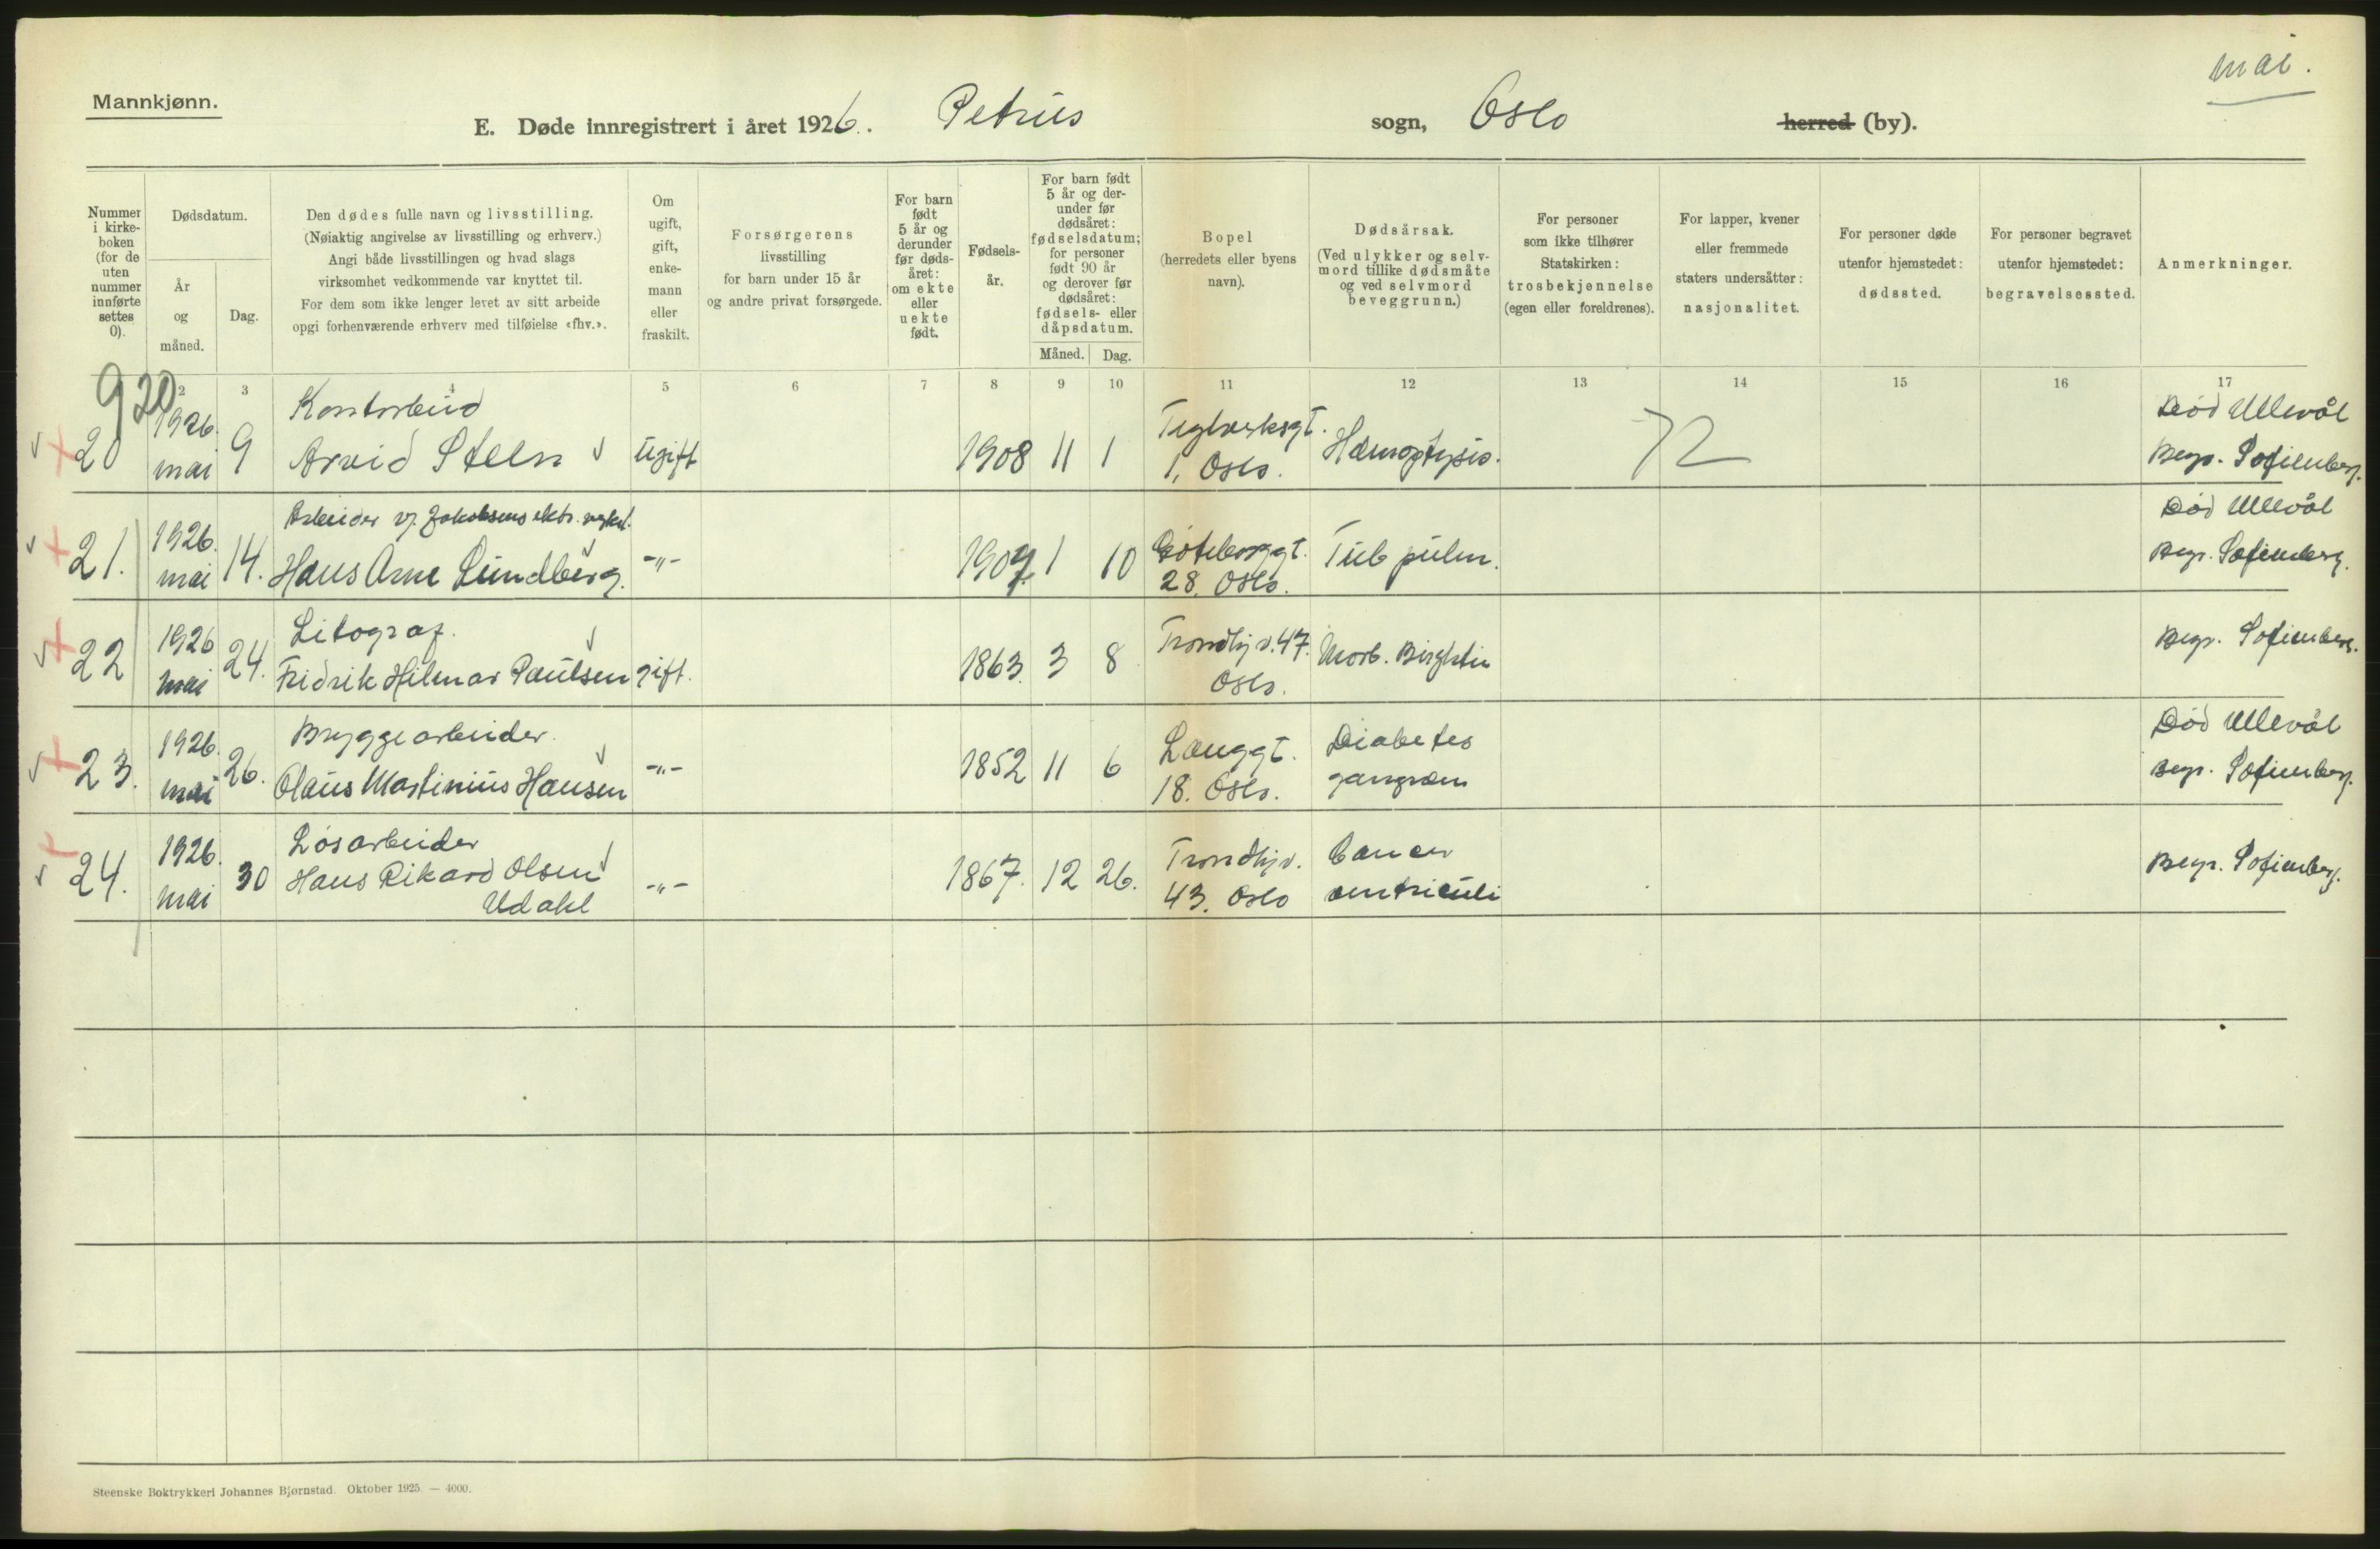 mai.
Mannkjønn.
E. Døde innregistrert i året 1926. Petrus sogn, Oslo herred (by).
Nummer i kirke-boken (for de uten nummer innførte settes 0).
Dødsdatum.
År og måned.
Dag.
Den dødes fulle navn og livsstilling.
(Nøiaktig angivelse av livsstilling og erhverv.)
Angi både livsstillingen og hvad slags
virksomhet vedkommende var knyttet til.
For dem som ikke lenger levet av sitt arbeide
opgi forhenværende erhverv med tilføielse «fhv.».
Om ugift, gift, enke-mann eller fraskilt.
Forsørgerens
livsstilling
for barn under 15 år
og andre privat forsørgede.
For barn født 5 år og derunder før døds-året: om ekte eller uekte født.
Fødsels-år.
For barn født 5 år og der-under før dødsåret: fødselsdatum; for personer født 90 år og derover før dødsåret: fødsels- eller dåpsdatum.
Måned. Dag.
Bopel
(herredets eller byens
navn).
Dødsårsak.
(Ved ulykker og selv-
mord tillike dødsmåte
og ved selvmord
beveggrunn.)
For personer
som ikke tilhører
Statskirken:
trosbekjennelse
(egen eller foreldrenes).
For lapper, kvener
eller fremmede
staters undersåtter:
nasjonalitet.
For personer døde
utenfor hjemstedet:
dødssted.
For personer begravet
utenfor hjemstedet:
begravelsessted.
Anmerkninger.
2 3 4 5 6 7 8 9 10 11 12 13 14 15 16 17
920
Kontorbud
Død Ullevål
20 1926. mai 9 Arvid Steen ugift 1908 11 1 Teglverksgt. 1, Oslo. Hæmoptysis. 72
Begr. Sofienberg.
Arbeider v/ Jakobsens elktr. verkst.
Død Ullevål
21. 1926. mai 14. Hans Arne Lundberg. -"- 1907. 1 10 Gøteborggt. 28. Oslo. Tub pulm.
Begr. Sofienberg.
Litograf.
22 1926 mai 24. Fridrik Hilmar Paulsen gift. 1863. 3 8 Trondhj v. 47. Oslo. Morb. Birghtii
Begr. Sofienberg.
Bryggearbeider.
Død Ullevål
23. 1926. mai 26. Olaus Martinius Hansen -"- 1852 11 6 Langgt. 18. Oslo. Diabetes gangræn
Begr. Sofienberg.
Løsarbeider
24. 1926. mai 30 Hans Rikard Olsen Udahl -"- 1867. 12 26. Trondhjv. 43. Oslo Cancer ventriculi
Begr. Sofienberg.
Steenske Boktrykkeri Johannes Bjørnstad. Oktober 1925. — 4000.